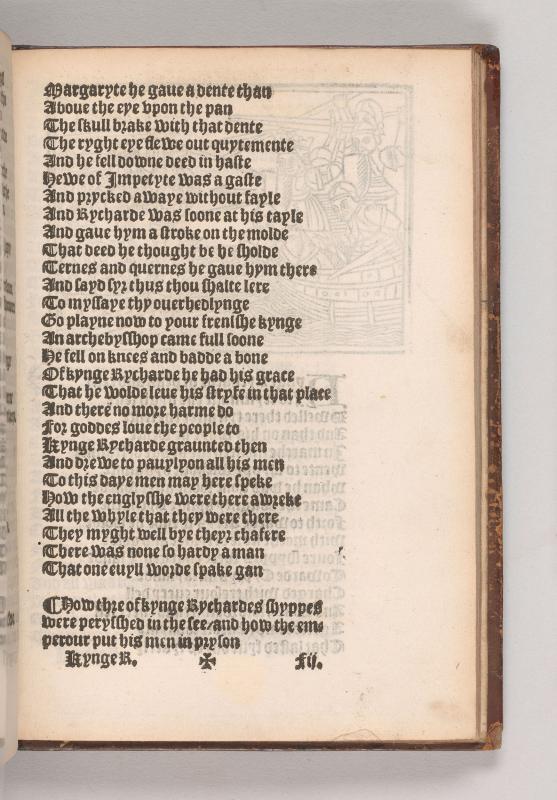 Margaryte he gaue a dente than
Aboue the eye vpon the pan
The skull brake with that dente
The ryght eye flewe out quytemente
And he fell downe deed in haste
Hewe of Impetyte was a gaste
And prycked awaye without fayle
And Rycharde was soone at his tayle
And gaue hym a stroke on the molde
That deed he thought be he sholde
Ternes and quernes he gaue hym there
And sayd syr thus thou shalte lere
To myssaye thy ouerhedlynge
Go playne now to your frenshe kynge
An archebysshop came full soone
He fell on knees and badde a bone
Of kynge Rycharde he had his grace
That he wolde leue his stryfe in that place
And there no more harme do
For goddes loue the people to
Kynge Rycharde graunted then
And drewe to pauylyon all his men
To this daye men may here speke
How the englysshe were there awreke
All the whyle that they were there
They myght well bye theyr chafere
There was none so hardy a man
That one euyll worde spake gan
¶How thre of kynge Rychardes shyppes
were perysshed in the see/and how the em-
perour put his men in pryson
Kynge R. ✠ F.ij.